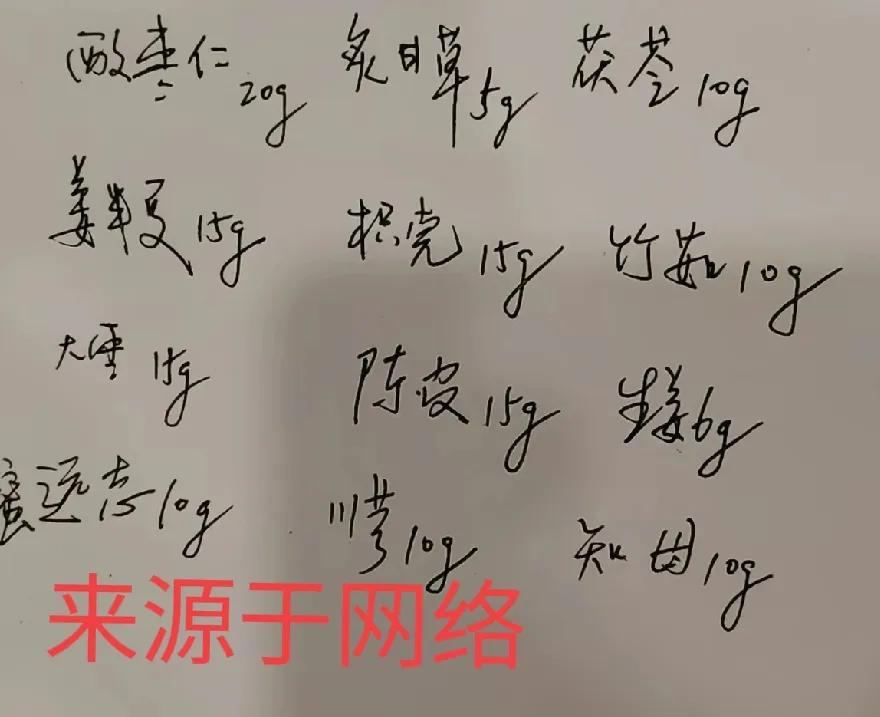 酸枣仁20g 炙甘草5g 茯苓10g
姜半夏15g 枳壳15g 竹茹10g
大枣15g 陈皮15g 生姜6g
蜜远志10g 川芎10g 知母10g
来源于网络